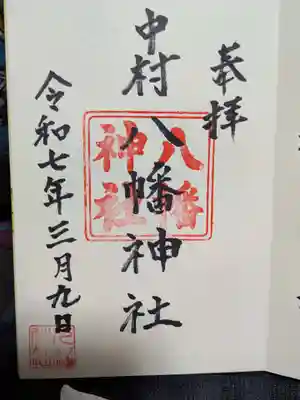 奉拝
中村八幡神社
八幡
神社
令和七年三月九日